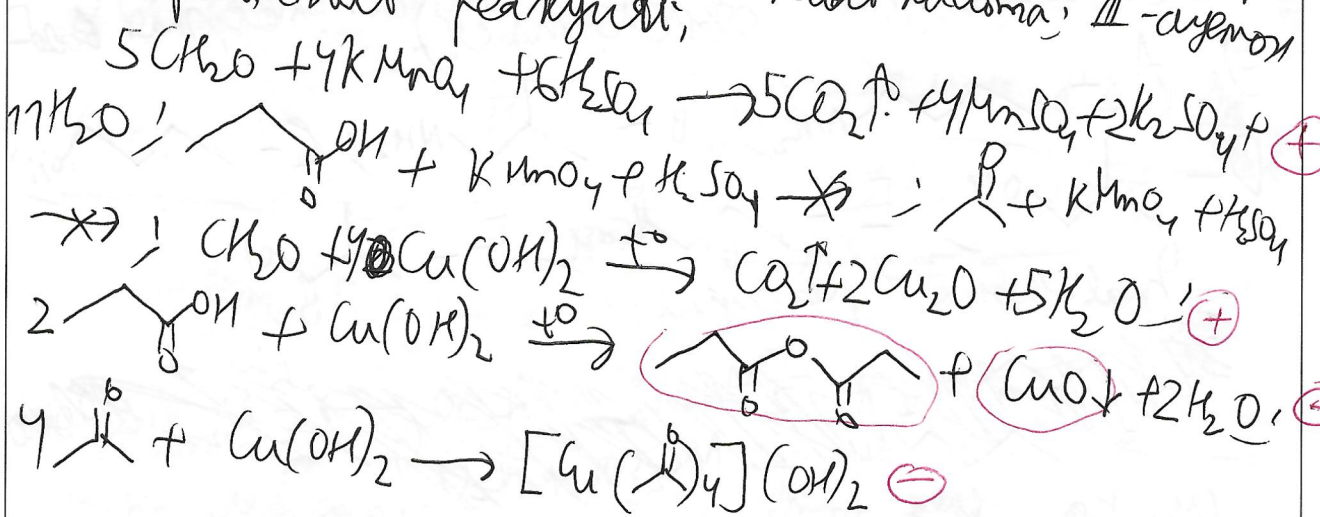 реакции;
II-
5CH2O + 4KMnO4 + 6H2SO4 → 5CO2↑ + 4MnSO4 + 2K2SO4 +
11H2O ; OH O + KMnO4 + H2SO4 ; O + KMnO4 + H2SO4
; CH2O + 4Cu(OH)2 t° → CO2↑ + 2Cu2O + 5H2O ;
2 OH O + Cu(OH)2 t° → O O O + CuO↓ + 2H2O ;
4 O + Cu(OH)2 → [Cu( O )4](OH)2